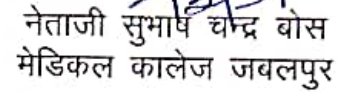 नेताजी सुभाष चन्द्र बोस
मेडिकल कालेज जबलपुर